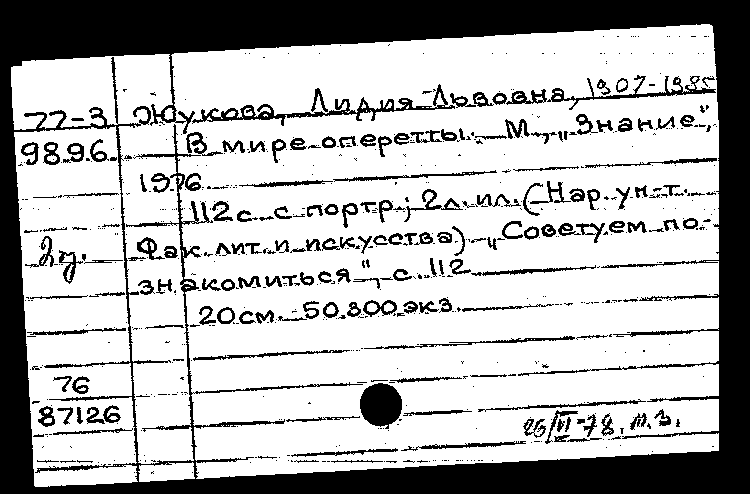 77-3 Жукова, Лидия Львовна, 1907-1985
9896. В мире оперетты. М., „Знание",
1976
112 с. с портр.; 2 л. ил. (Нар. ун-т.
Фак. лит. и искусства) „Советуем по-
знакомиться", с. 112
20 см. 50.300 экз.
76
87126
26/VI-78. м.з.